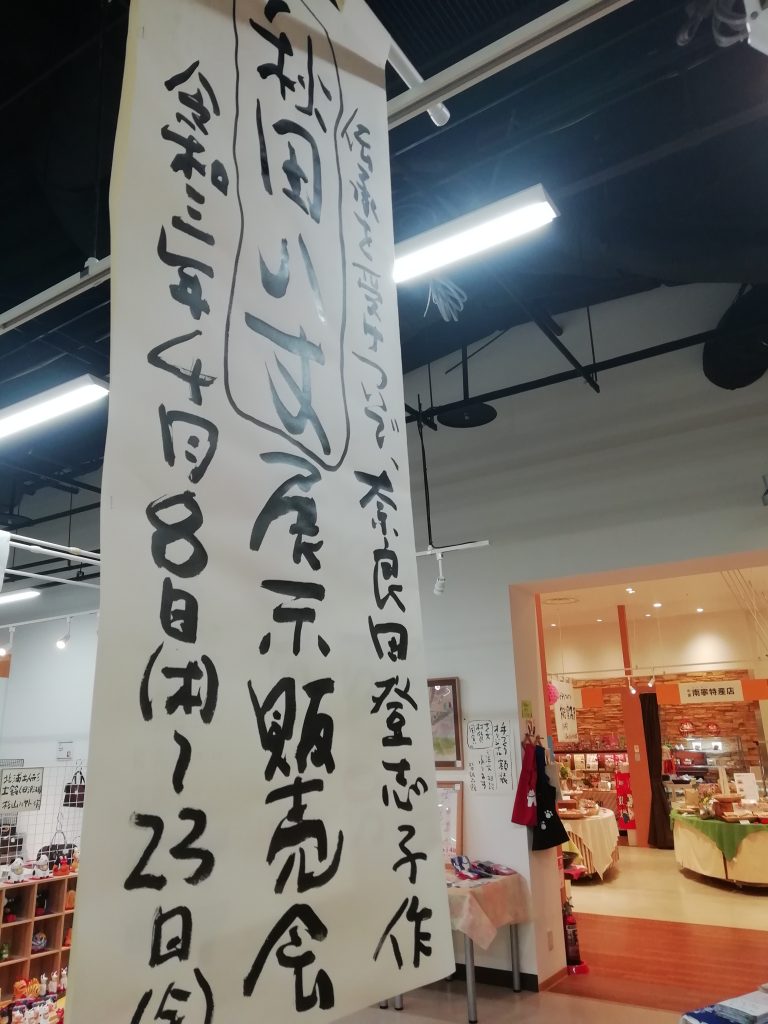 伝承を受けついで、奈良田登志子作
秋田八丈展示販売会
令和三年4月8日(木)~23日(金)
南寧特産店